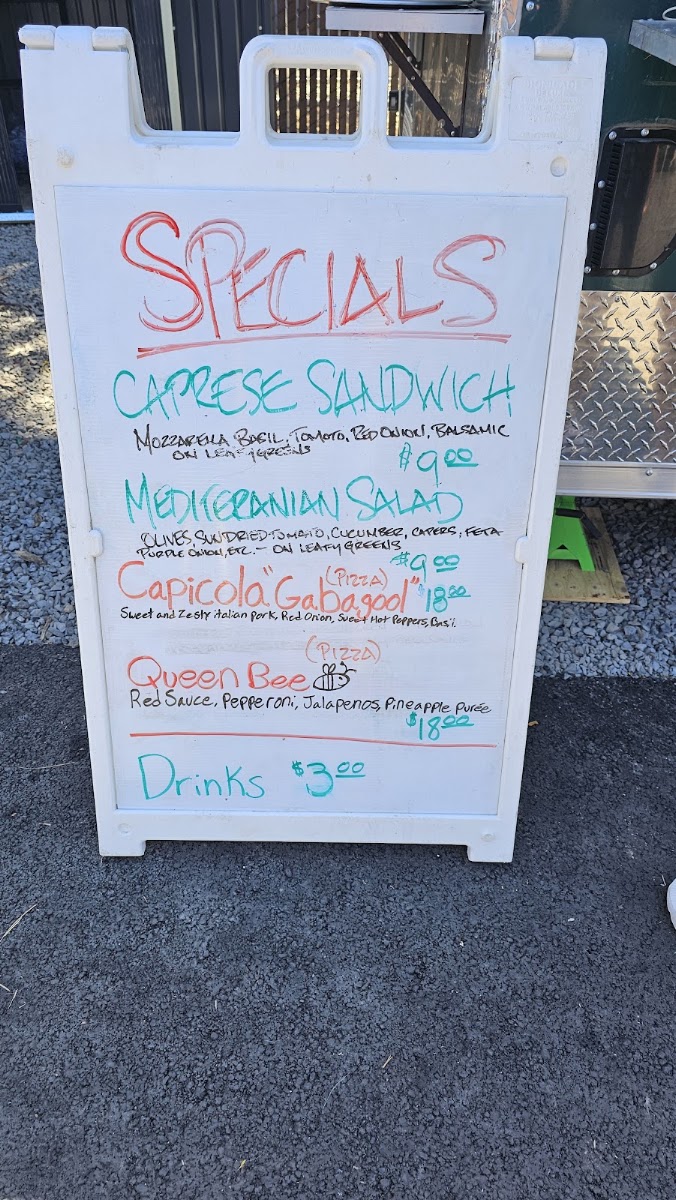 SPECIALS
CAPRESE SANDWICH
MOZZARELLA BASIL, TOMOTO, RED ONION, BALSAMIC
ON LEAFY GREENS
$9.00
MEDITERANIAN SALAD
OLIVES, SUNDRIED TOMATO, CUCUMBER, CAPERS, FETA
PURPLE ONION, ETC. - ON LEAFY GREENS
$9.00
(PIZZA)
Capicola "Gabagool" $18.00
Sweet and Zesty italian Pork, Red Onion, Sweet Hot Peppers, Basil
(PIZZA)
Queen Bee
Red Sauce, Pepperoni, Jalapenos, Pineapple Purée
$18.00
Drinks $3.00